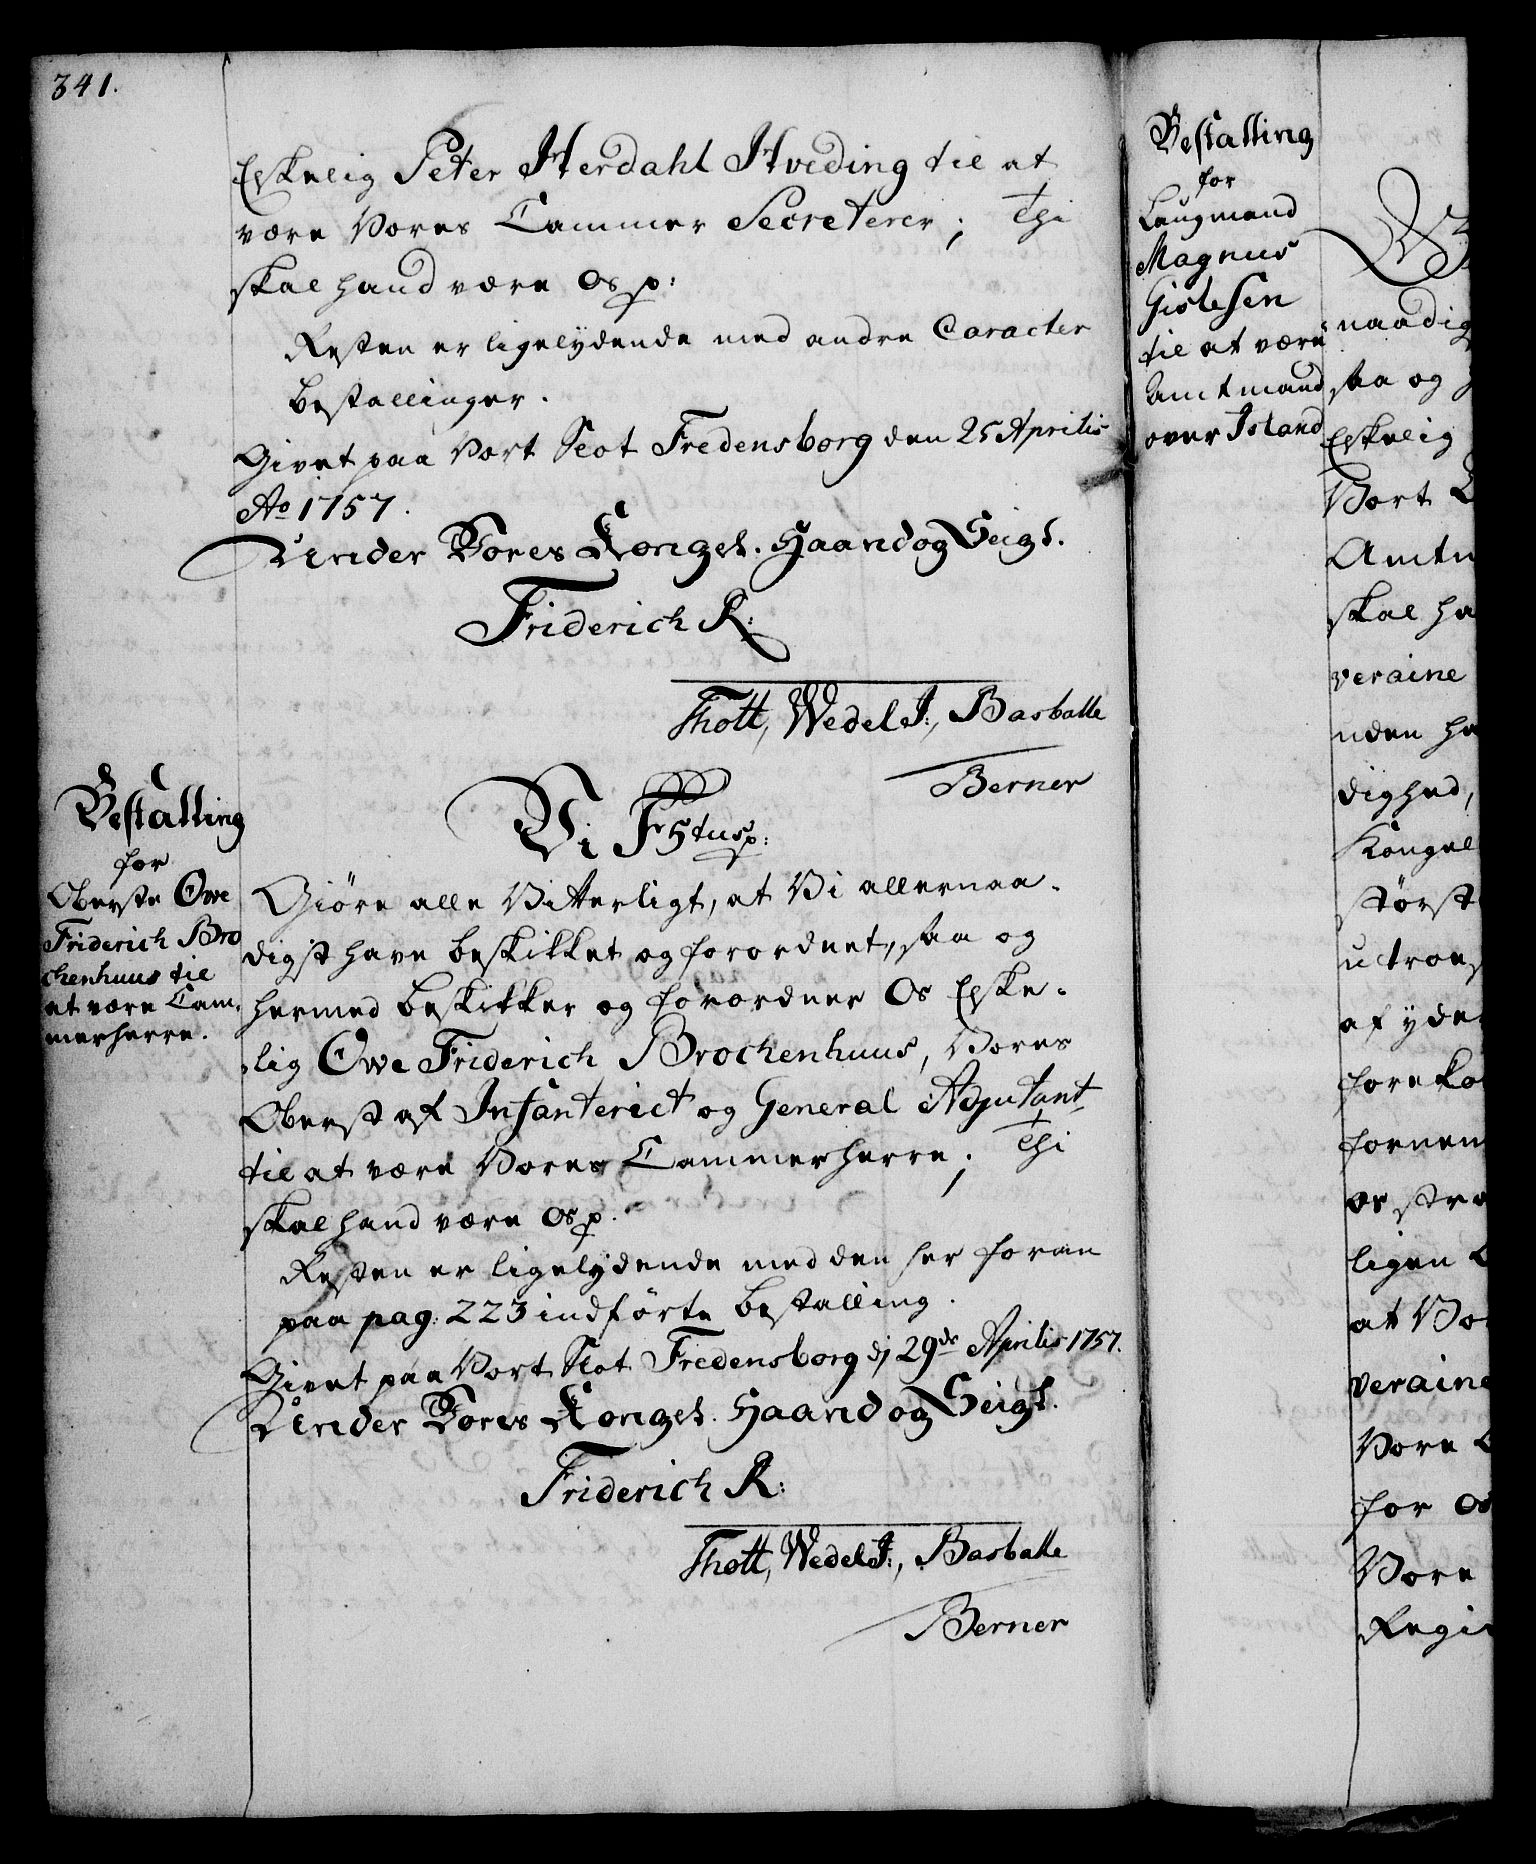 341.
Elskelig Peter Herdahl Hveding til at
være Vores Cammer Secreterer; Thi
skal hand være Os p:
Resten er ligelydende med andre Caracter
bestallinger.
Givet paa Vort Slot Fredensborg den 25 Aprilis
Ao 1757.
Under Vores Kongel. Haand og Seigl.
Friderich R:
Thott, Wedel J:, Basballe
Berner
Bestalling
for
Oberste Owe
Friderich Bro
chenhuus til
at være Cam-
merherre.
Vi F5tus p:
Giøre alle Vitterligt, at Vi allernaa-
digst have beskikket og forordnet, saa og
hermed beskikker og forordner Os Elske-
lig Owe Friderich Brochenhuus, Vores
Oberst af Infanteriet og General Adjutant
til at være Vores Cammerherre; Thi
skal hand være Os p.
Resten er ligelydende med den her foran
paa pag: 223 indførte bestalling.
Givet paa Vort Slot Fredensborg dj 29de Aprilis 1757.
Under Vores Kongel. Haand og Seigl.
Friderich R:
Thott, Wedel J:, Basballe
Berner
Bestalling
for
Laugmand
Magnus
Gislesen
til at være
Amtmand
over Island
naadig
saa og
Elskelig
Vort
Amtm
skal ha
veraine
uden ha
dighed,
Kongel
størst
uctroes
af yde
foreko
fornem
os stra
ligen
at Vo
veraine
Vore
for Os
Vore
Regi